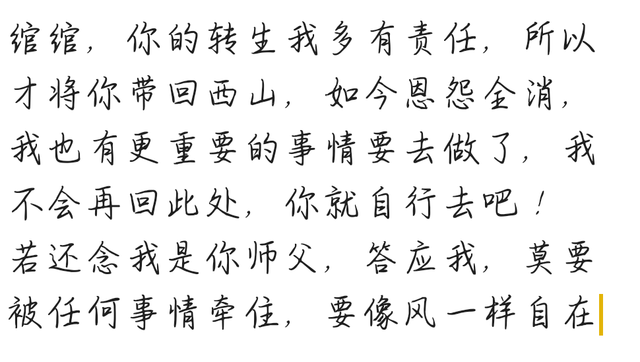 绾绾，你的转生我多有责任，所以
才将你带回西山，如今恩怨全消，
我也有更重要的事情要去做了，我
不会再回此处，你就自行去吧！
若还念我是你师父，答应我，莫要
被任何事情牵住，要像风一样自在